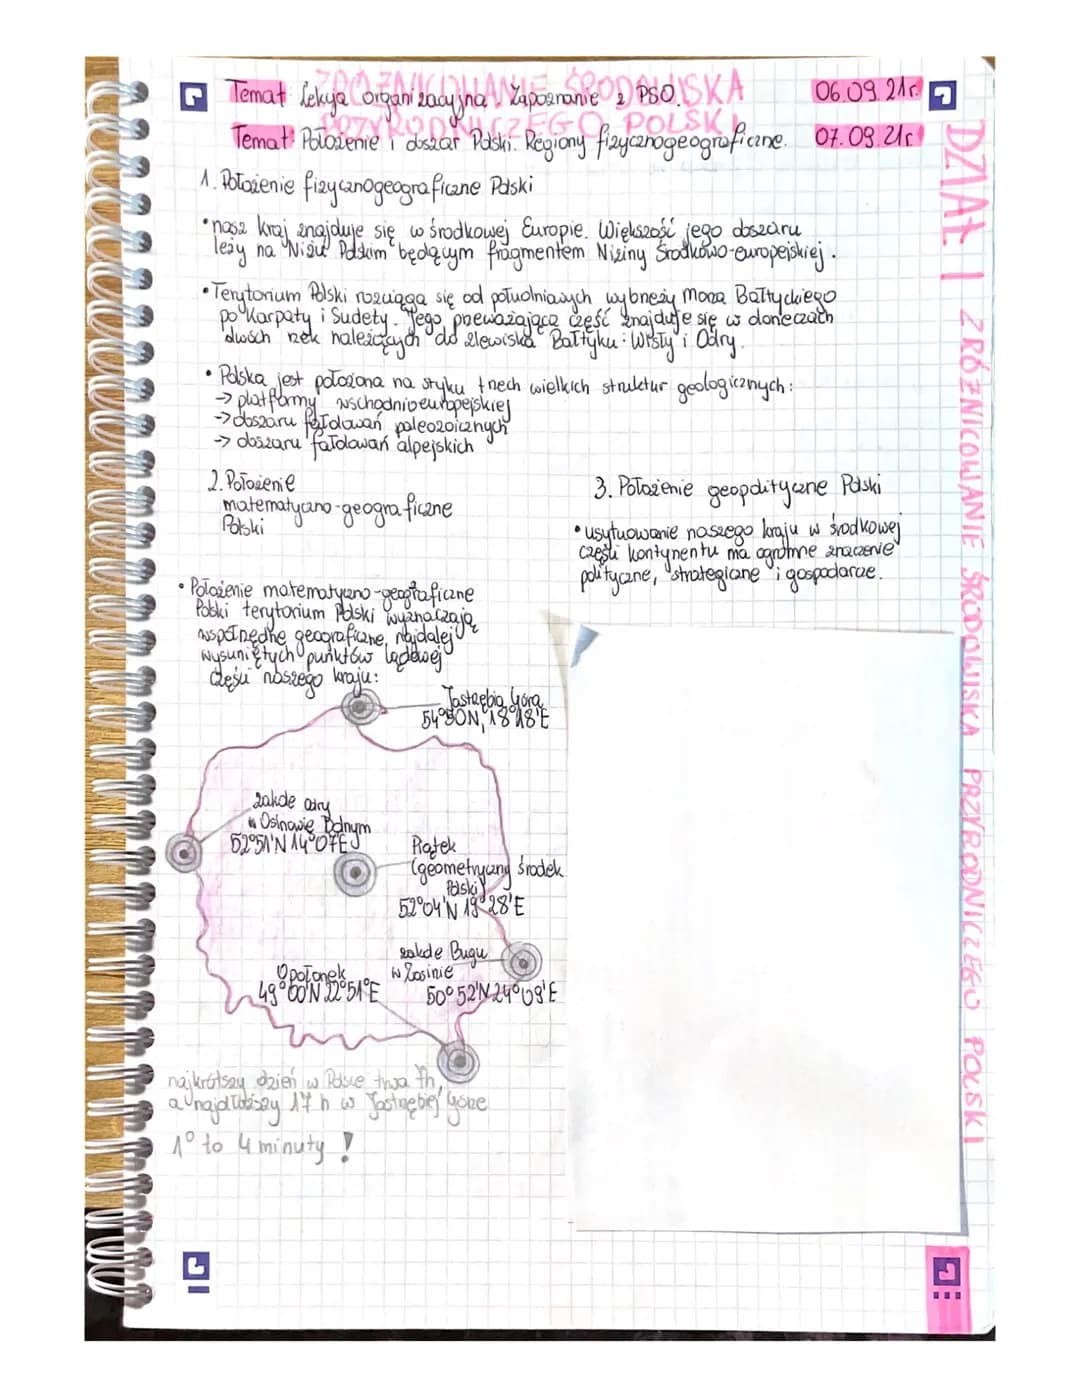 ZRÓŻNICOWANIE ŚRODOWISKA
PRZYRODNICZEGO POLSKI
Temat: Lekcja organizacyjna. Zapoznanie z PSO. 06.09.21r.
Temat: Położenie i obszar Polski. Regiony fizycznogeograficzne. 07.09.21r.
1. Położenie fizycznogeograficzne Polski
• nasz kraj znajduje się w środkowej Europie. Większość jego obszaru
leży na Niżu Polskim będącym fragmentem Niziny Środkowo-europejskiej.
• Terytorium Polski rozciąga się od południowych wybrzeży Morza Bałtyckiego
po Karpaty i Sudety. Jego przeważająca część znajduje się w dorzeczach
dwóch rzek należących do zlewiska Bałtyku: Wisły i Odry.
• Polska jest położona na styku trzech wielkich struktur geologicznych:
→ platformy wschodnioeuropejskiej
→ obszaru fałdowań paleozoicznych
→ obszaru fałdowań alpejskich
2. Położenie
matematyczno-geograficzne
Polski
• Położenie matematyczno-geograficzne
Polski terytorium Polski wyznaczają
współrzędne geograficzne najdalej
wysuniętych punktów lądowej
części naszego kraju:
Jastrzębia Góra
54°50N, 18°18'E
zakole Odry
w Osinowie Dolnym
52°51'N 14°07'E
Piątek
(geometryczny środek
Polski)
52°04'N 19°28'E
zakole Bugu
w Zosinie
50°52'N 24°09'E
Opołonek
49°00'N 22°51'E
najkrótszy dzień w Polsce trwa 7h,
a najdłuższy 17 h w Jastrzębiej Górze
1° to 4 minuty !
3. Położenie geopolityczne Polski
• usytuowanie naszego kraju w środkowej
części kontynentu ma ogromne znaczenie
polityczne, strategiczne i gospodarcze.
DZIAŁ 1 ZRÓŻNICOWANIE ŚRODOWISKA PRZYRODNICZEGO POLSKI